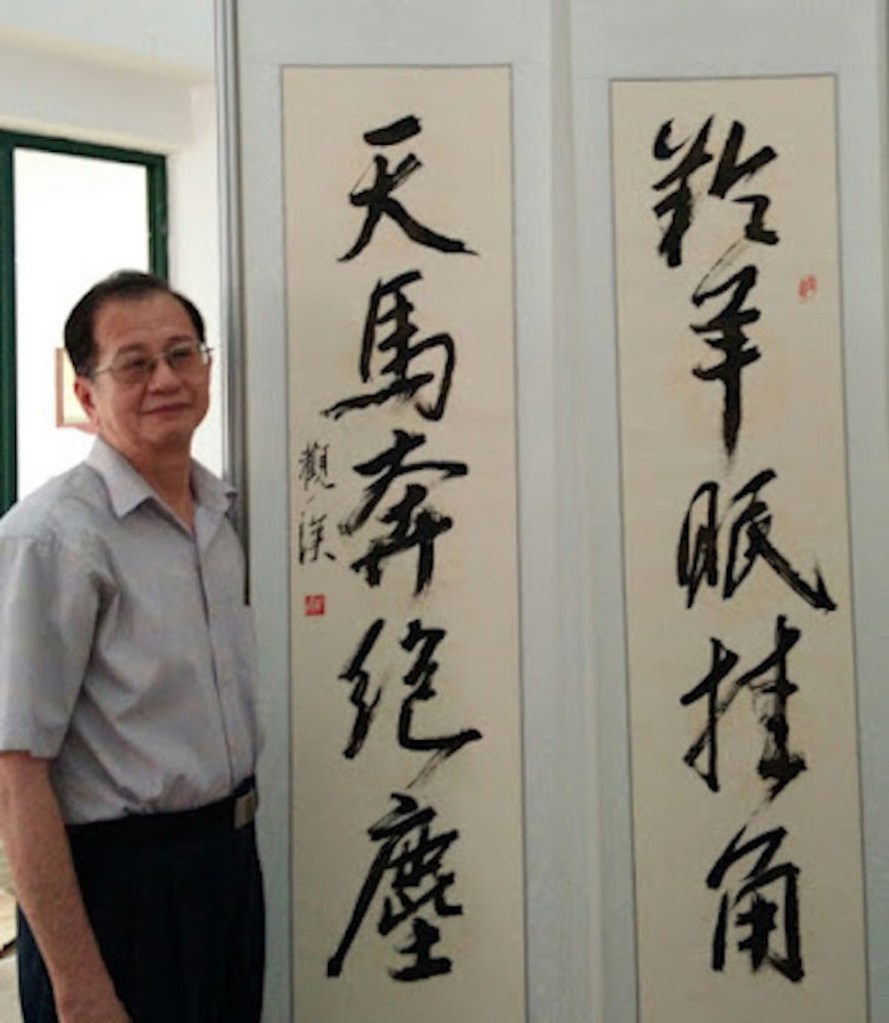 羚羊眠挂角
天馬奔絶塵
觀溪